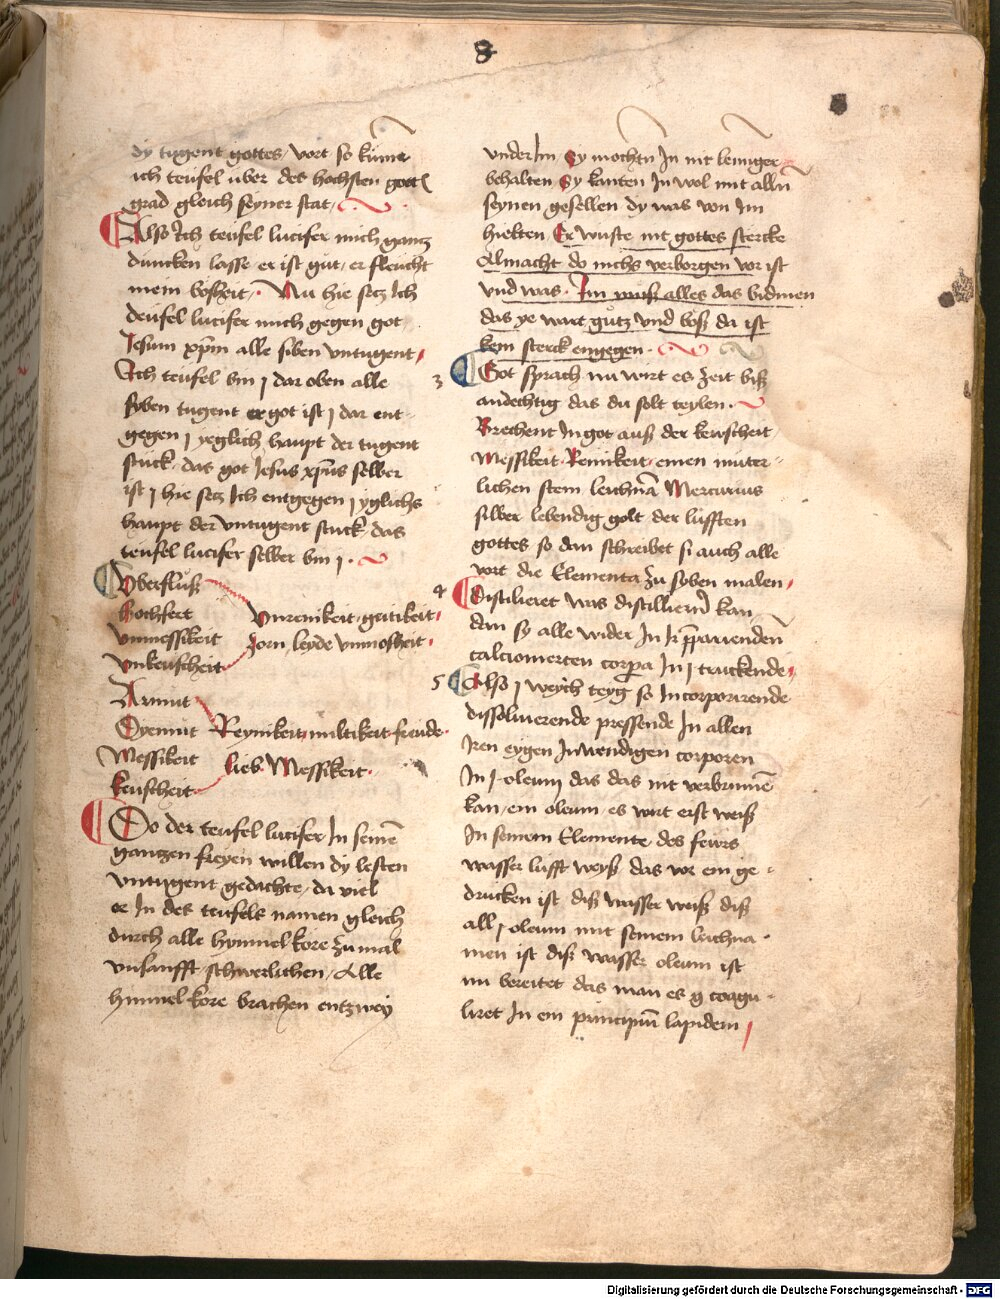 8
dy tugent gottes / vort so kume
ich teufel uber des hochsten gott
grad gleich seyner stat /
Also Ich teufel lucifer mich gantz
duncken lasse / er ist gut / er fleucht
mein bosheit / Nu hie secz Ich
deufel lucifer mich gegen got
Jesum xpm alle siben untugent /
Ich teufel bin j dar oben alle
syben tugent er got ist j dar ent-
gegen j yeglich haupt der tugent
stuck / das got Jesus xpus selber
ist j hie secz Ich entgegen j yglichs
haupt der untugent stuck / das
teufel lucifer selber bin j .
Uberfluß
Hochfert
Unmessikeit
Unkeuscheit
Unreinikeit / geitikeit /
Zorn / leyde unmosheit /
Armut
Dyemut
Messikeit
keuscheit
Reynikeit / miltikeit / freude
lieb / Messikeit .
Do der teufel lucifer In seinē
gantzen freyen willen dy lesten
untugent gedachte / da viel
er In des teufels namen gleich
durch alle hymmel kore zu mal
unsanfft / schwerlichen / Alle
himmel kore brachen entzwey
under Im / Sy mochtn In nit lenniger
behalten Sy kanten In wol mit alln
seynen gesellen dy was von Im
hielten / Er wuste nit gottes stercke
Almacht do nichs verborgen vor ist
und was . Im muß alles das bidmen
das ye wart gutz und boß da ist
kein sterck engegen .
3 Got sprach nu wirt es zeit biß
andechtig das du solt teylen .
Brechent In got auß der keuscheit
Messikeit / Reinikeit / einen muter-
lichen stein / leichnā Mercurius
silber lebendig golt der lufften
gottes so dan schreibet si auch alle
vort die Elementa zu soben malen /
4 Distilieret was distillierñ kan
dan sy alle wider In Ir pparienden
calcionierten corpa In j truckende /
5 Also j weych teyg so Incorporirende
dissoluierende pressende In allen
Iren eygen Inwendigen corporen
In j oleum das das nit verbrinnē
kan / ein oleum / es wirt erst weiß
In seinem Elemente des feurs
wasser lufft weyß das vor ein ge-
drucken ist diß wasser weiß diß
all j oleum mit seinem leichna-
men ist diß wasser oleum ist
nu bereitet das man es g coagu-
liret In ein principiū lapidem /
Digitalisierung gefördert durch die Deutsche Forschungsgemeinschaft - DFG